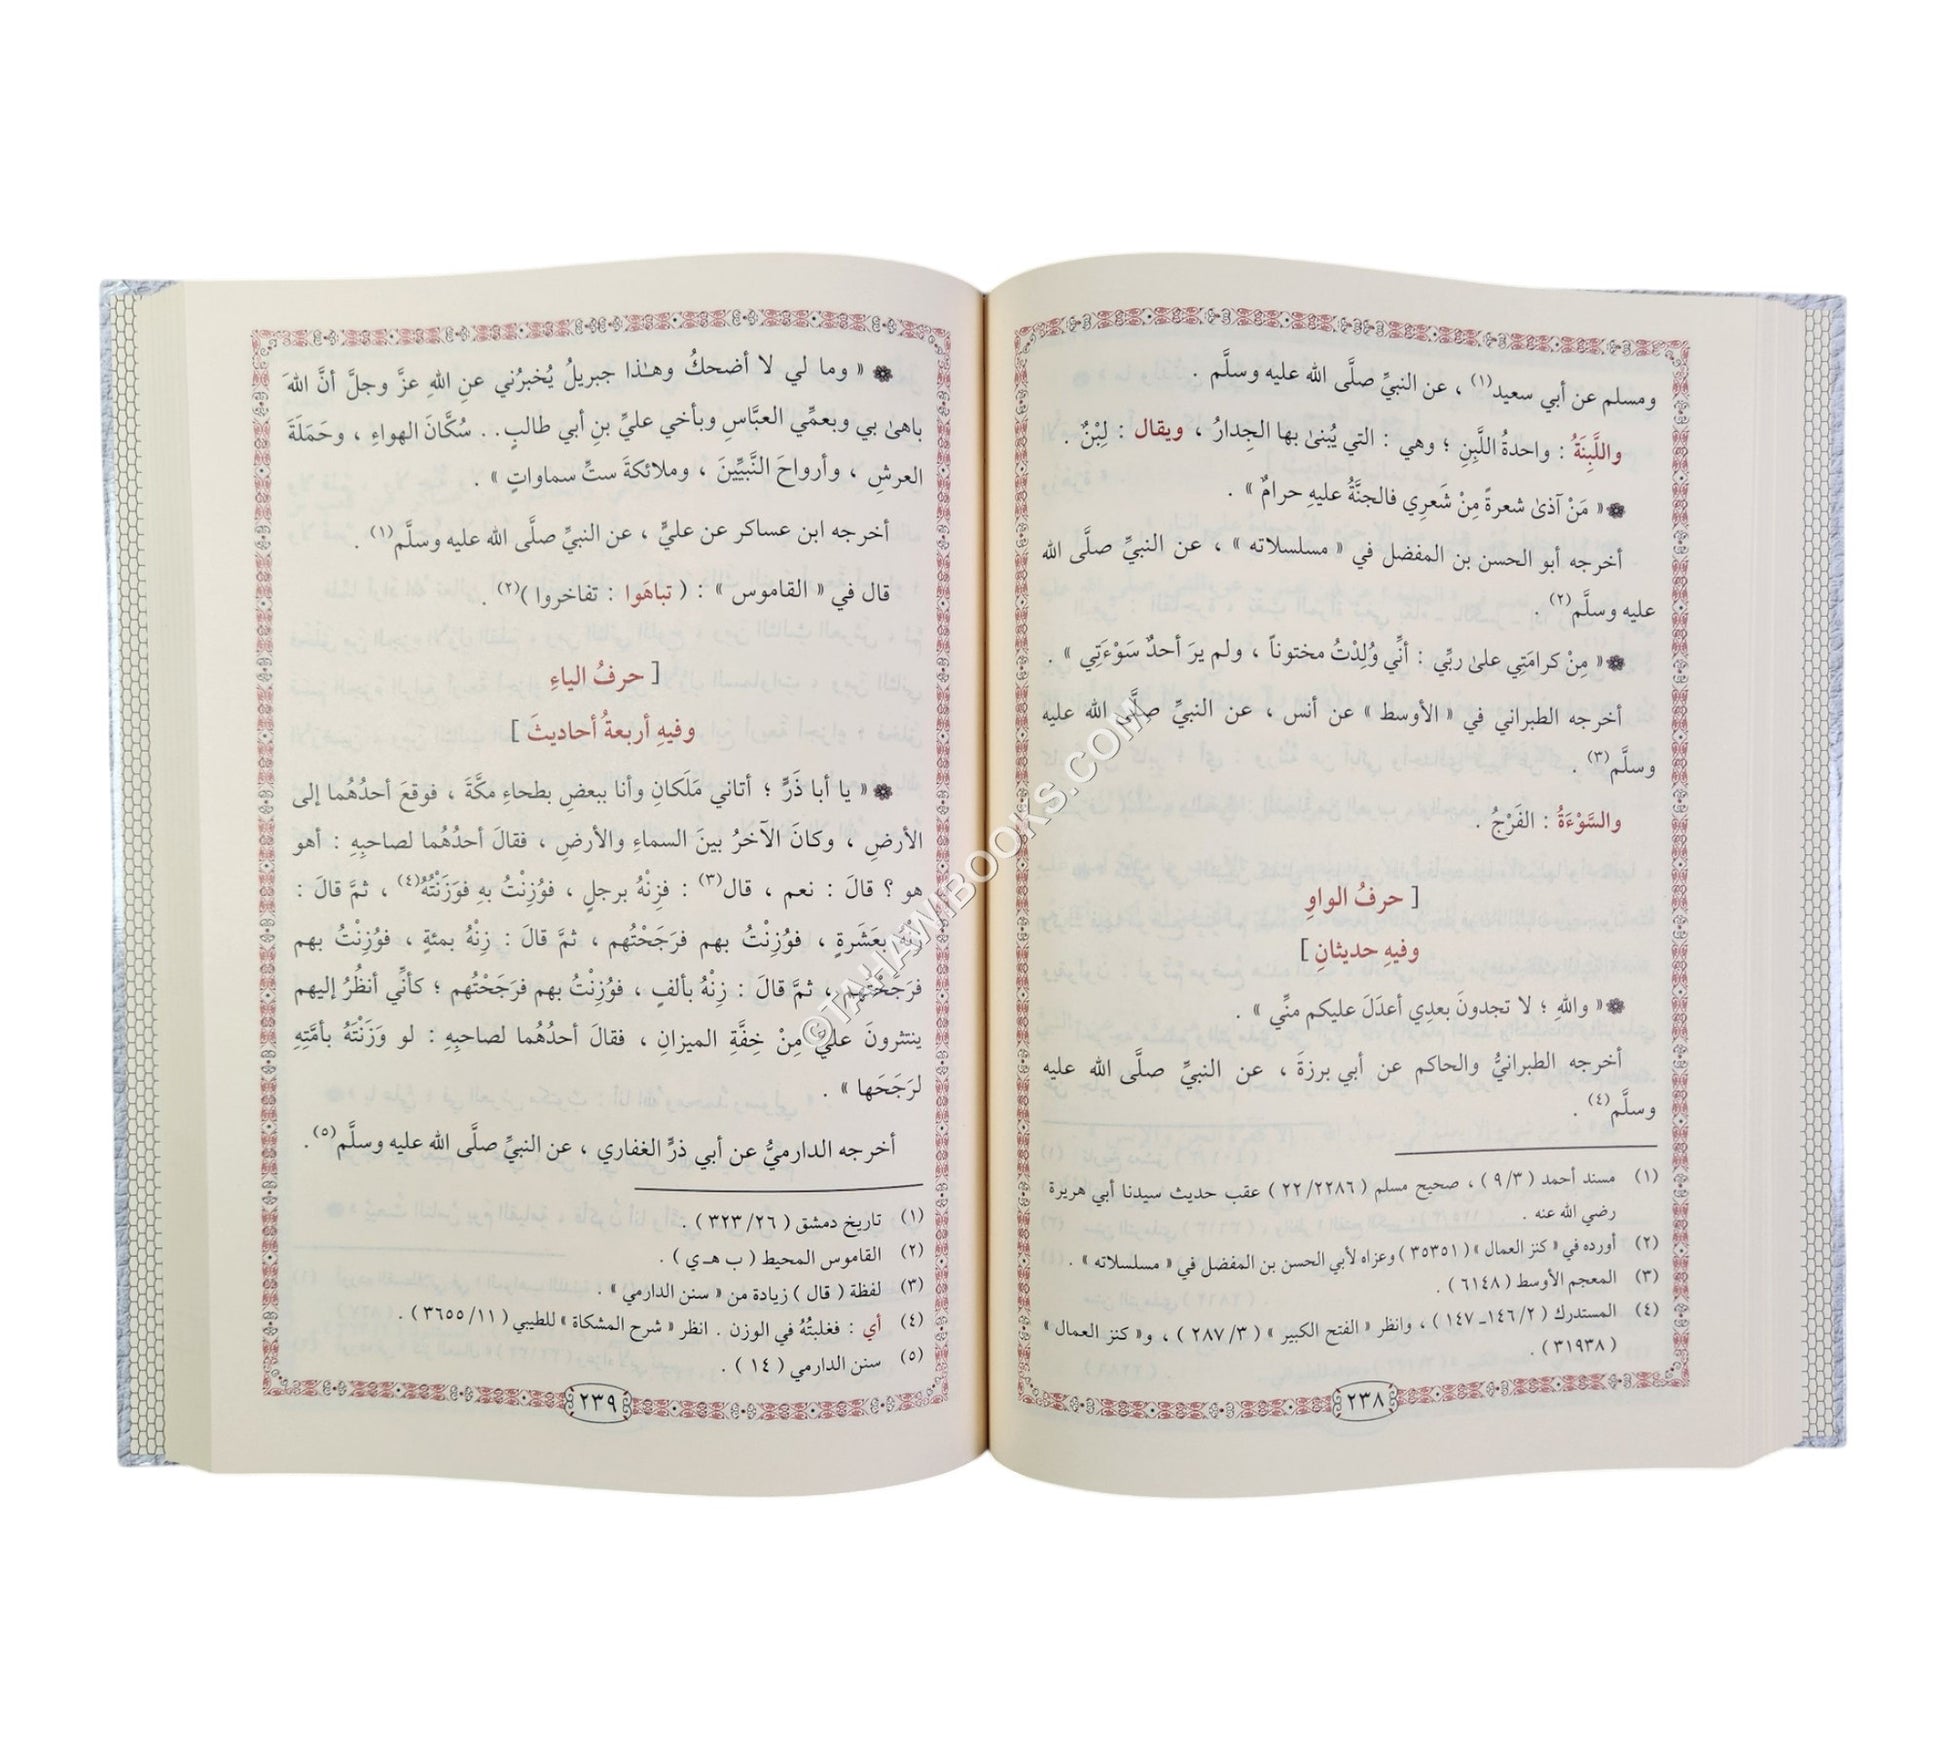 ومسلم عن أبي سعيد(١) ، عن النبيِّ صلَّى الله عليه وسلَّم .
واللَّبِنَةُ : واحدةُ اللَّبِنِ ؛ وهي : التي يُبنىٰ بها الجِدارُ ، ويقال : لِبْنٌ .
« مَنْ آذىٰ شعرةً مِنْ شَعرِي فالجنَّةُ عليهِ حرامٌ » .
أخرجه أبو الحسن بن المفضل في « مسلسلاته » ، عن النبيِّ صلَّى الله
عليه وسلَّم(٢) .
« مِنْ كرامَتِي علىٰ ربِّي : أنِّي وُلِدْتُ مختوناً ، ولم يرَ أحدٌ سَوْءَتِي » .
أخرجه الطبراني في « الأوسط » عن أنس ، عن النبيِّ صلَّى الله عليه
وسلَّم(٣) .
والسَّوْءَةُ : الفَرْجُ .
[ حرفُ الواوِ
وفيهِ حديثانِ ]
« واللهِ ؛ لا تجدونَ بعدِي أعدَلَ عليكم منِّي » .
أخرجه الطبرانيُّ والحاكم عن أبي برزةَ ، عن النبيِّ صلَّى الله عليه
وسلَّم(٤) .
(١) مسند أحمد ( ٩/٣ ) ، صحيح مسلم ( ٢٢/٢٢٨٦ ) عقب حديث سيدنا أبي هريرة
رضي الله عنه .
(٢) أورده في « كنز العمال » ( ٣٥٣٥١ ) وعزاه لأبي الحسن بن المفضل في « مسلسلاته » .
(٣) المعجم الأوسط ( ٦١٤٨ ) .
(٤) المستدرك ( ١٤٦/٢ـ١٤٧ ) ، وانظر « الفتح الكبير » ( ٢٨٧/٣ ) ، و« كنز العمال »
( ٣١٩٣٨ ) .
٢٣٨
« وما لي لا أضحكُ وهـٰذا جبريلُ يُخبرُني عنِ اللهِ عزَّ وجلَّ أنَّ اللهَ
باهىٰ بي وبعمِّي العبَّاسِ وبأخي عليِّ بنِ أبي طالبٍ.. سُكَّانَ الهواءِ ، وحَمَلَةَ
العرشِ ، وأرواحَ النَّبيِّينَ ، وملائكةَ ستِّ سماواتٍ » .
أخرجه ابن عساكر عن عليٍّ ، عن النبيِّ صلَّى الله عليه وسلَّم(١) .
قال في « القاموس » : ( تباهَوا : تفاخروا )(٢) .
[ حرفُ الياءِ
وفيهِ أربعةُ أحاديثَ ]
« يا أبا ذَرٍّ ؛ أتاني مَلَكانِ وأنا ببعضِ بطحاءِ مكَّةَ ، فوقعَ أحدُهُما إلى
الأرضِ ، وكانَ الآخرُ بينَ السماءِ والأرضِ ، فقالَ أحدُهُما لصاحبِهِ : أهو
هو ؟ قالَ : نعم ، قال(٣) : فزِنْهُ برجلٍ ، فوُزِنْتُ بهِ فوَزَنْتُهُ(٤) ، ثمَّ قالَ :
زِنْهُ بعَشَرةٍ ، فوُزِنْتُ بهم فرَجَحْتُهم ، ثمَّ قالَ : زِنْهُ بمئةٍ ، فوُزِنْتُ بهم
فرَجَحْتُهم ، ثمَّ قالَ : زِنْهُ بألفٍ ، فوُزِنْتُ بهم فرَجَحْتُهم ؛ كأنِّي أنظُرُ إليهم
ينتثرونَ عليَّ مِنْ خِفَّةِ الميزانِ ، فقالَ أحدُهُما لصاحبِهِ : لو وَزَنْتَهُ بأمَّتِهِ
لرَجَحَها » .
أخرجه الدارميُّ عن أبي ذرٍّ الغفاري ، عن النبيِّ صلَّى الله عليه وسلَّم(٥).
(١) تاريخ دمشق ( ٣٢٣/٢٦ ) .
(٢) القاموس المحيط ( ب هـ ي ) .
(٣) لفظة ( قال ) زيادة من « سنن الدارمي » .
(٤) أي : فغلبتُهُ في الوزن . انظر « شرح المشكاة » للطيبي ( ٣٦٥٥/١١ ) .
(٥) سنن الدارمي ( ١٤ ) .
٢٣٩
©TAHAWIBOOKS.COM